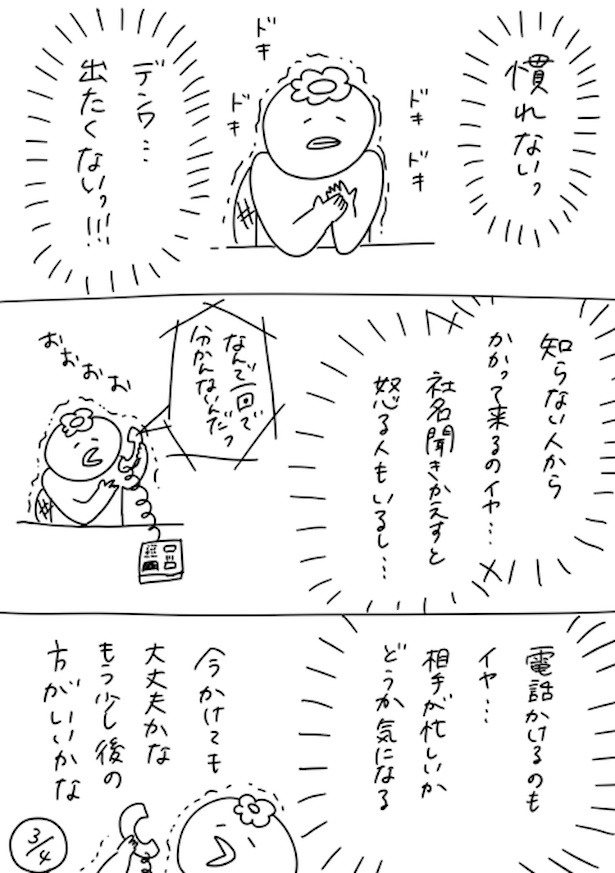 慣れないっ
ドキ
ドキ
ドキ
ドキ
デンワ…
出たくないっ!!!
知らない人から
かかって来るのイヤ…
社名聞きかえすと
怒る人もいるし…
なんで一回で
分かんないんだっ
おおおお
電話かけるのも
イヤ…
相手が忙しいか
どうか気になる
今かけても
大丈夫かな
もう少し後の
方がいいかな
3/4